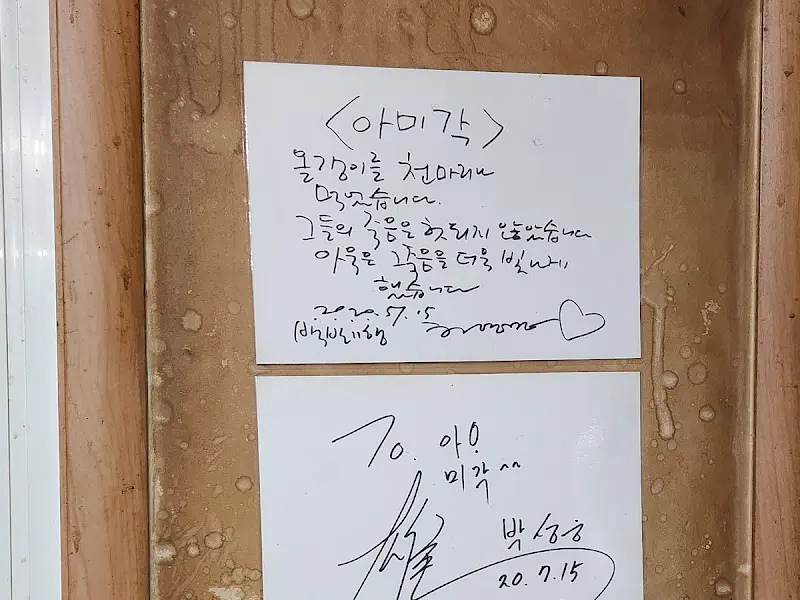 <아미각>
올갱이를 천마리나
먹었습니다.
그들의 죽음은 헛되지 않았습니다
아욱은 그 죽음을 더욱 빛나게
했습니다
2020. 7. 15
(백반기행)
To. 아!
미각^^
雄
박성웅
20.7.15